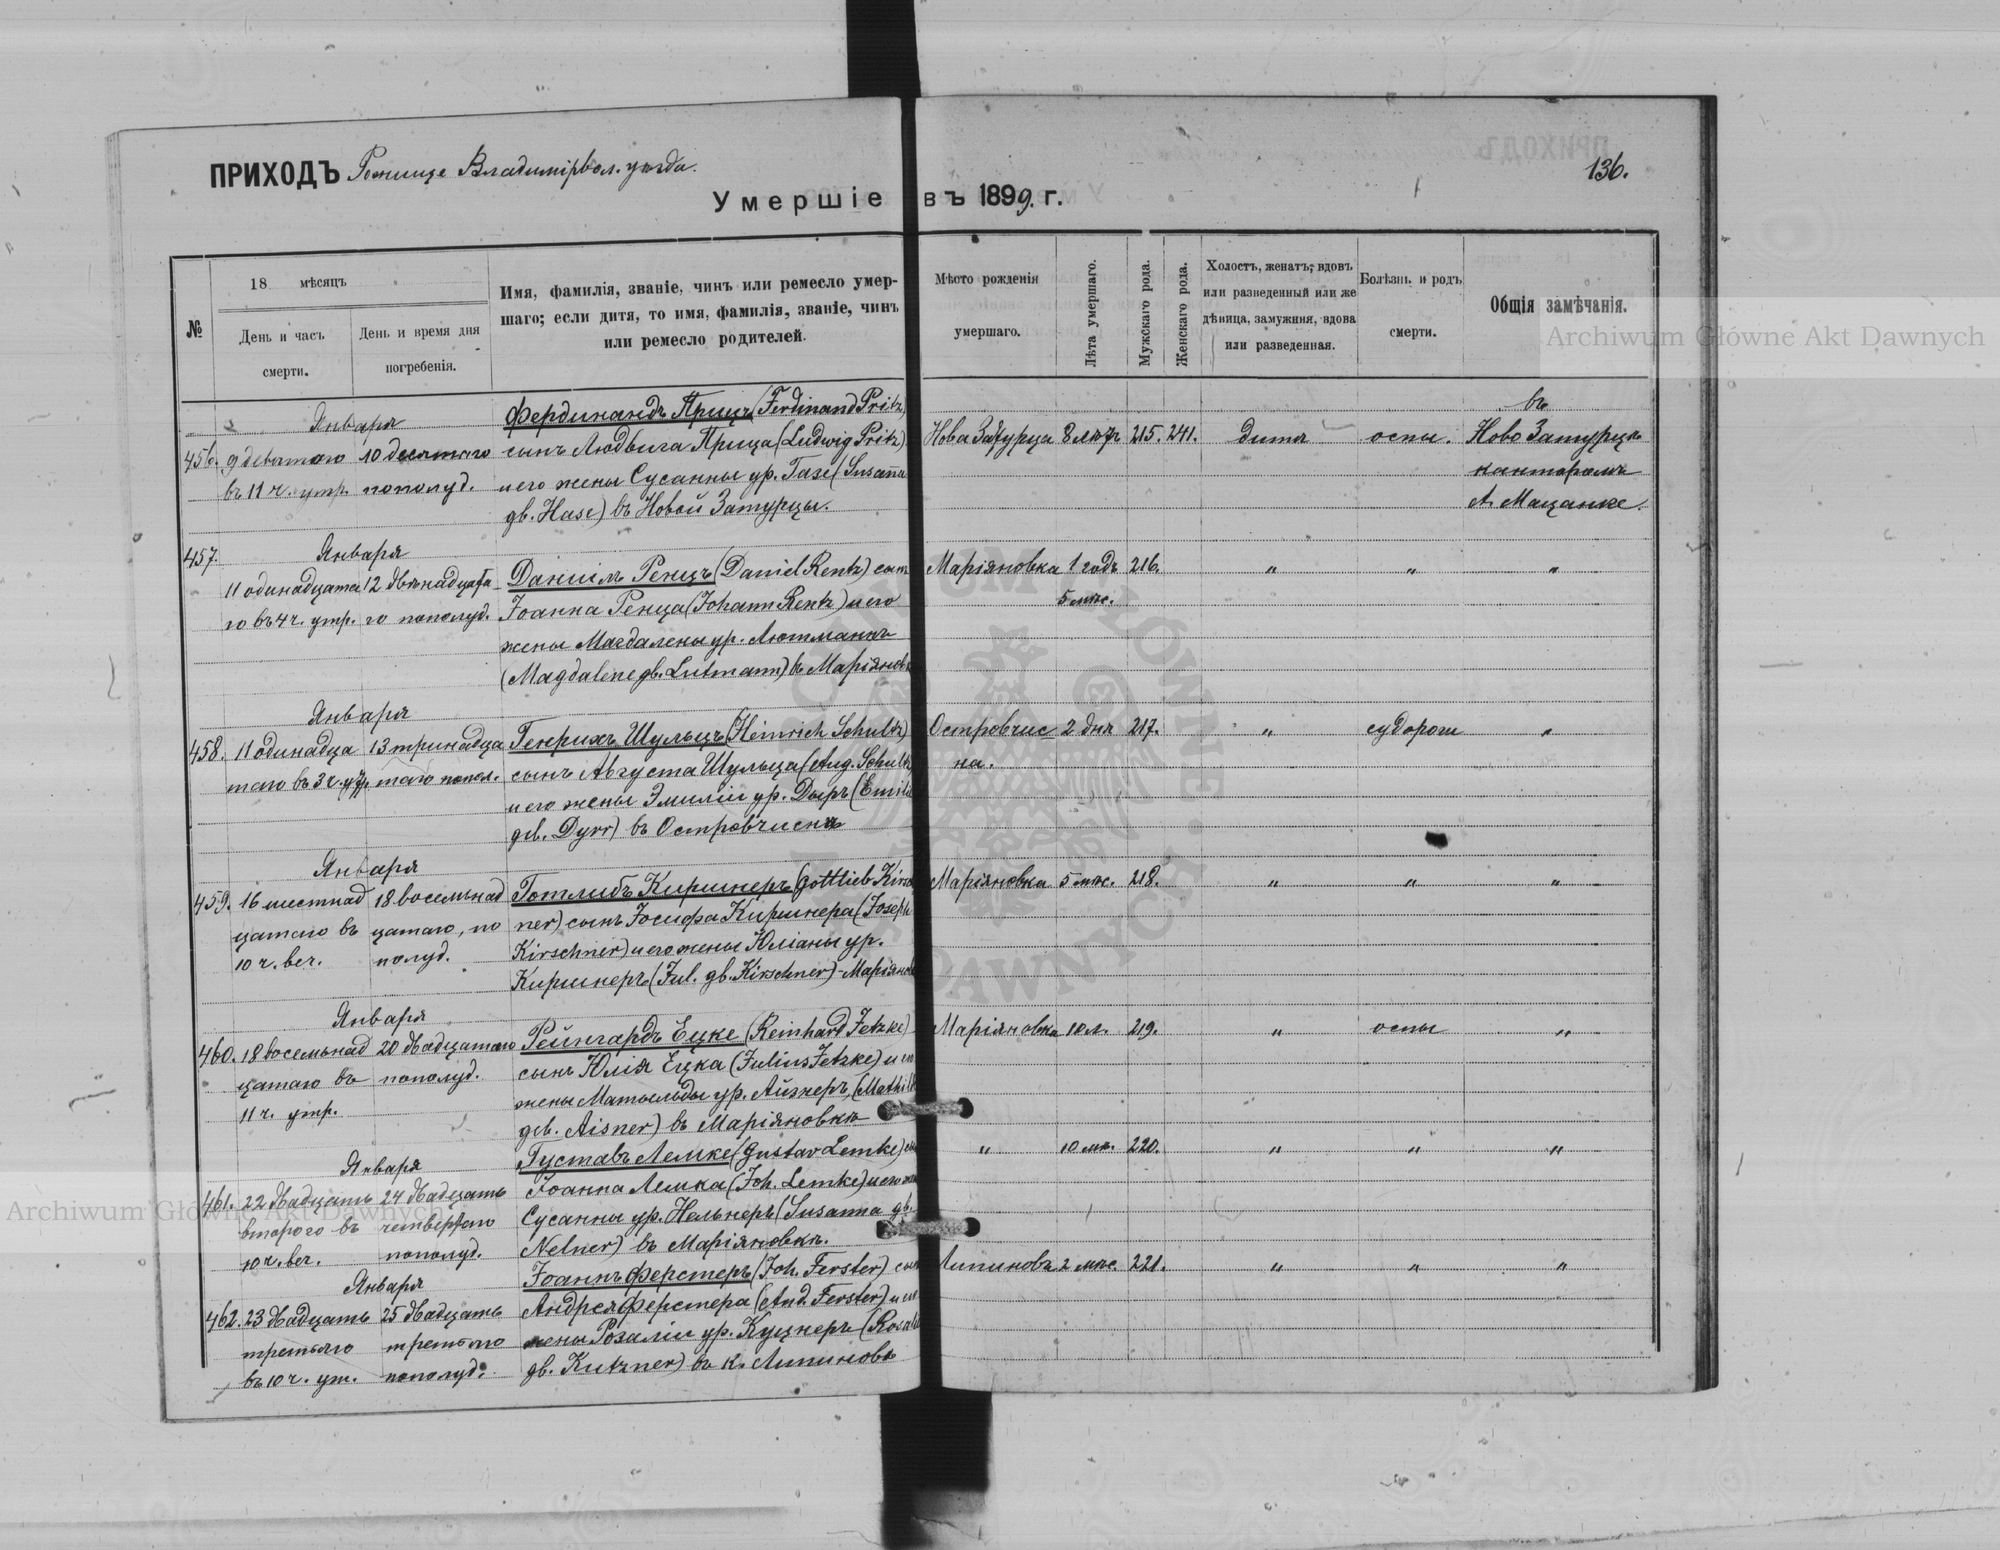 ПРИХОДЪ Рожище Владимірвол. уезда.
136.
Умершіе въ 1899. г.
№
18 мѣсяцъ
День и часъ смерти.
День и время дня погребенія.
Имя, фамилія, званіе, чинъ или ремесло умер-
шаго; если дитя, то имя, фамилія, званіе, чинъ
или ремесло родителей.
Мѣсто рожденія умершаго.
Лѣта умершаго.
Мужскаго рода.
Женскаго рода.
Холостъ, женатъ, вдовъ
или разведенный или же
дѣвица, замужняя, вдова
или разведенная.
Болѣзнь и родъ смерти.
Общія замѣчанія.
Archiwum Główne Akt Dawnych
Января Фердинандъ Прицъ (Ferdinand Pritz) въ
456. 9 девятаго 10 десятаго сынъ Людвига Прица (Ludwig Pritz) Нова Затурца 8 лѣтъ 215. 241. дитя оспы. Ново Затурцѣ
въ 11 ч. утр. пополуд. и его жены Сусанны ур. Газе (Susanna канторомъ
дв. Hase) въ Новой Затурцы. А. Мацанке.
457. Января
11 одинадцата 12 двѣнадцата Даніилъ Ренцъ (Daniel Rentz) сынъ Маріяновка 1 годъ 216. " " "
го въ 4 ч. утр. го пополуд. Іоанна Ренца (Johann Rentz) и его 5 мѣс.
жены Магдалены ур. Лютманъ
(Magdalene дв. Lutmann) въ Маріяновк
Января
458. 11 одинадца 13 тринадца Генрихъ Шульцъ (Heinrich Schultz) Островчис 2 дня 217. " судороги "
таго въ 3 ч. утр. таго попол. сынъ Августа Шульца (Aug. Schultz на.
и его жены Эмиліи ур. Дыръ (Emilie
дв. Dyrr) въ Островчисна
Января
459. 16 шестнад 18 восемьнад Готлибъ Киршнеръ (Gottlieb Kirsch Маріяновка 5 мѣс. 218. " " "
цатаго въ цатаго, по ner) сынъ Іосифа Киршнера (Joseph
10 ч. веч. полуд. Kirschner) и его жены Юліаны ур.
Киршнеръ (Jul. дв. Kirschner) - Маріянов
Января
460. 18 восемьнад 20 двадцатаго Рейнгардъ Ецке (Reinhard Jetzke) Маріяновка 10 л. 219. " оспы "
цатаго въ пополуд. сынъ Юлія Ецка (Julius Jetzke) и его
11 ч. утр. жены Матыльды ур. Айзнеръ, (Mathild
дв. Aisner) въ Маріяновкѣ
Января Густавъ Лемке (Gustav Lemke) сын " 10 мѣ. 220. " " "
461. 22 двадцать 24 двадцать Іоанна Лемка (Joh. Lemke) и его жен
второго въ четвертаго Сусанны ур. Нельнеръ (Susanna дв.
10 ч. веч. пополуд. Nelner) въ Маріяновкѣ.
Января Іоаннъ Ферстеръ (Joh. Ferster) сын Липиновъ 2 мѣс. 221. " " "
462. 23 двадцать 25 двадцать Андрея Ферстера (And. Ferster) и его
третьяго третьяго жены Розаліи ур. Куцнеръ (Rosalie
въ 10 ч. ут. пополуд. дв. Kutzner) въ к. Липиновъ
Archiwum Główne Akt Dawnych